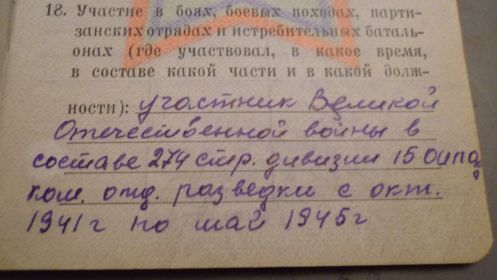 18. Участие в боях, боевых походах, парти-
занских отрядах и истребительных баталь-
онах (где участвовал, в какое время,
в составе какой части и в какой долж-
ности): участник Великой
Отечественной войны в
составе 274 стр. дивизии 15
ком. отд. разведки с окт.
1941 г по май 1945 г